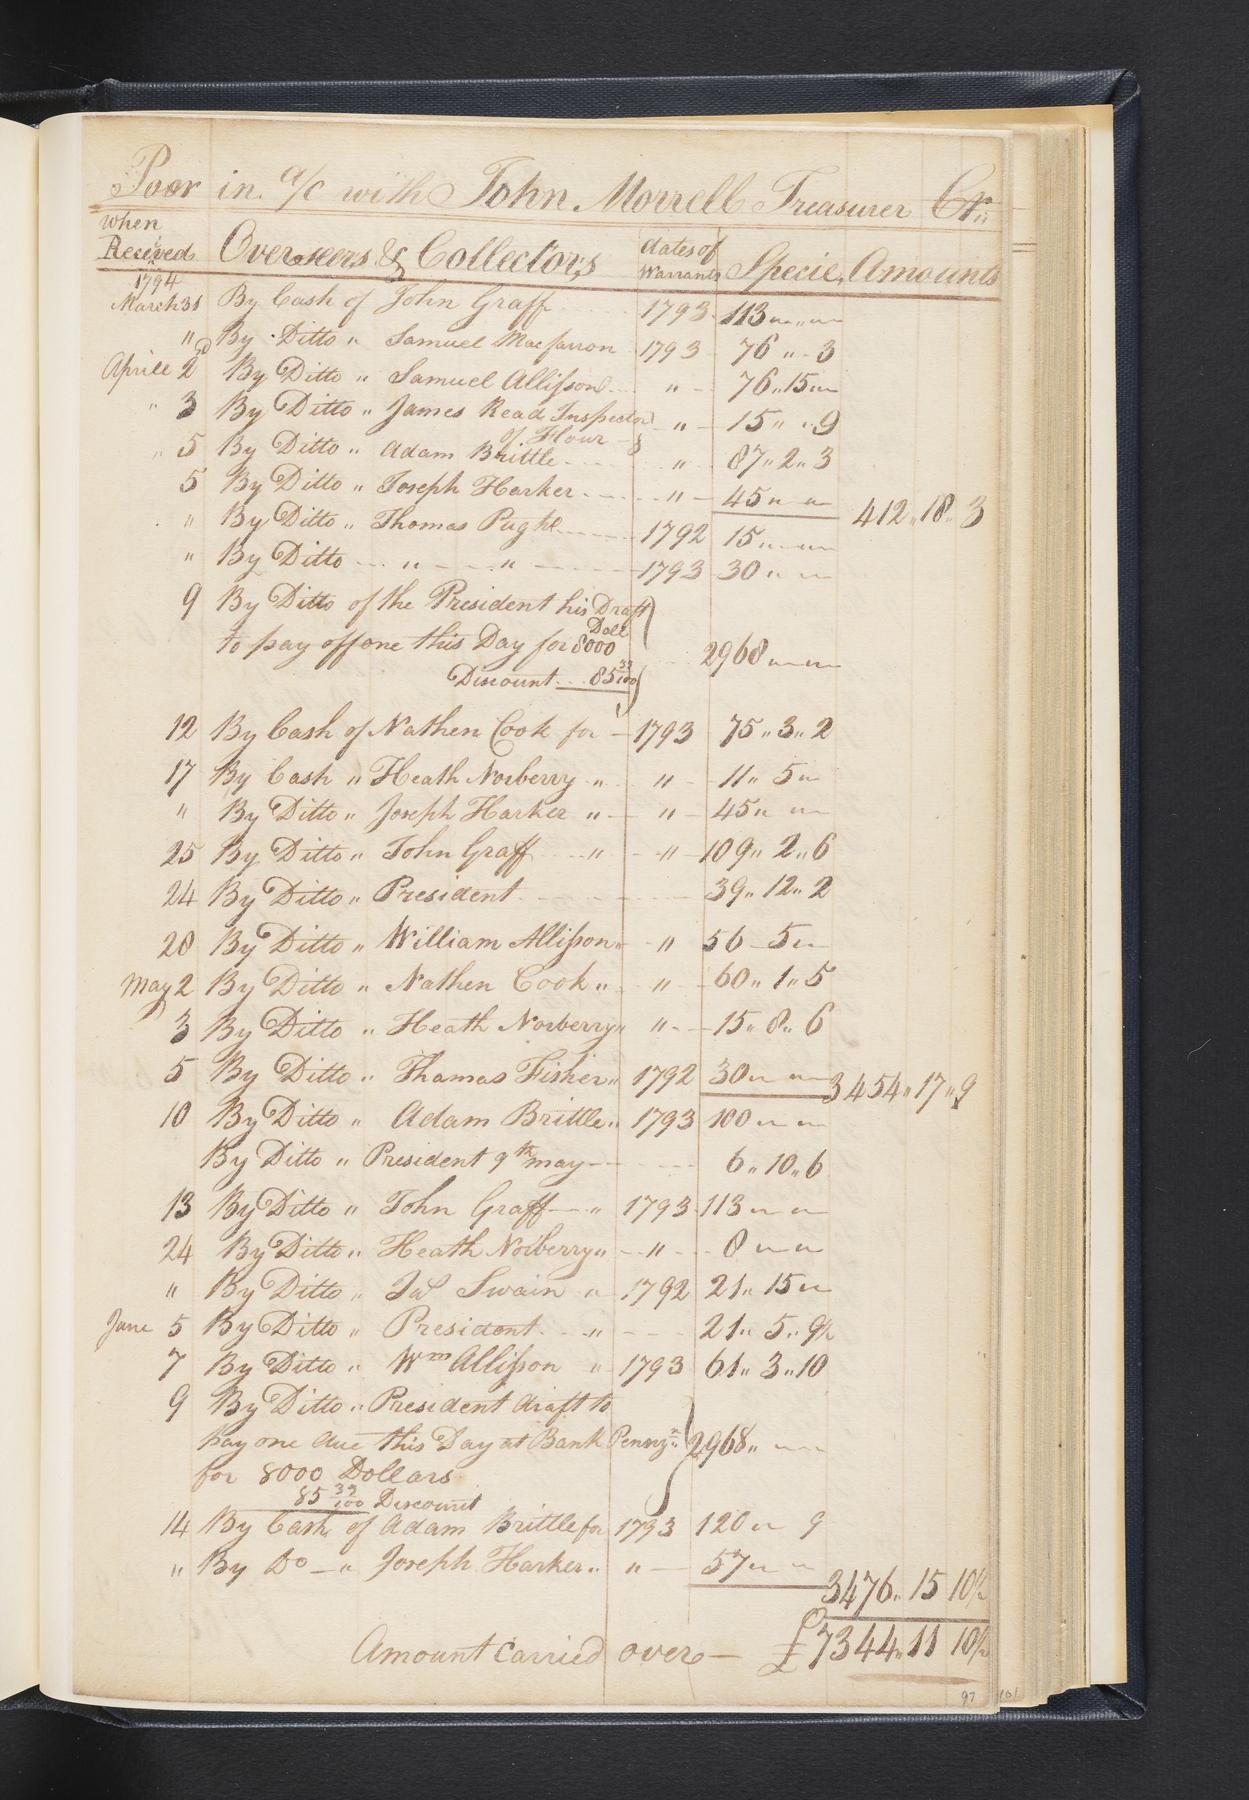 Poor in a/c with John Morrell Treasurer Cr
When Received Overseers & Collectors dates of Warrants Specie Amounts
1794
March 31 By Cash of John Graff 1793 113 " "
" By Ditto " Samuel Macfarron 1793 76 " 3
Aprill 2d By Ditto " Samuel Allisson " 76 " 15 "
" 3 By Ditto " James Read Inspector of Flour " 15 " " 9
" 5 By Ditto " Adam Brittle " 87 " 2 " 3
5 By Ditto " Joseph Harker " 45 " " 412 " 18 " 3
" By Ditto " Thomas Pughe 1792 15 " "
" By Ditto " " 1793 30 " "
9 By Ditto of the President his Draft
to pay off one this Day for 8000 Doll 2968 " "
Discount 85 39/100
12 By Cash of Nathen Cook for 1793 75 " 3 " 2
17 By Cash " Heath Norberry " " 11 " 5 "
" By Ditto " Joseph Harker " " 45 " "
25 By Ditto " John Graff " " 109 " 2 " 6
24 By Ditto " President 39 " 12 " 2
28 By Ditto " William Allisson " " 56 5 "
May 2 By Ditto " Nathen Cook " " 60 " 1 " 5
3 By Ditto " Heath Norberry " " 15 " 8 " 6
5 By Ditto " Thomas Fisher " 1792 30 " " 3454 " 17 " 9
10 By Ditto " Adam Brittle " 1793 100 " "
By Ditto " President 9th may 6 " 10 " 6
13 By Ditto " John Graff " 1793 113 " "
24 By Ditto " Heath Norberry " " 8 " "
" By Ditto " Jas Swain " 1792 21 " 15 "
June 5 By Ditto " President " 21 " 5 " 9½
7 By Ditto " Wm Allisson " 1793 61 " 3 " 10
9 By Ditto " President draft to
pay one due this Day at Bank Pennyᵃ 2968 " "
for 8000 Dollars
85 39/100 Discount
14 By Cash of Adam Brittle for 1793 120 " 9
" By Do " Joseph Harker " " 57 " "
3476 " 15 10½
Amount carried over £7344 " 11 10½
97 101